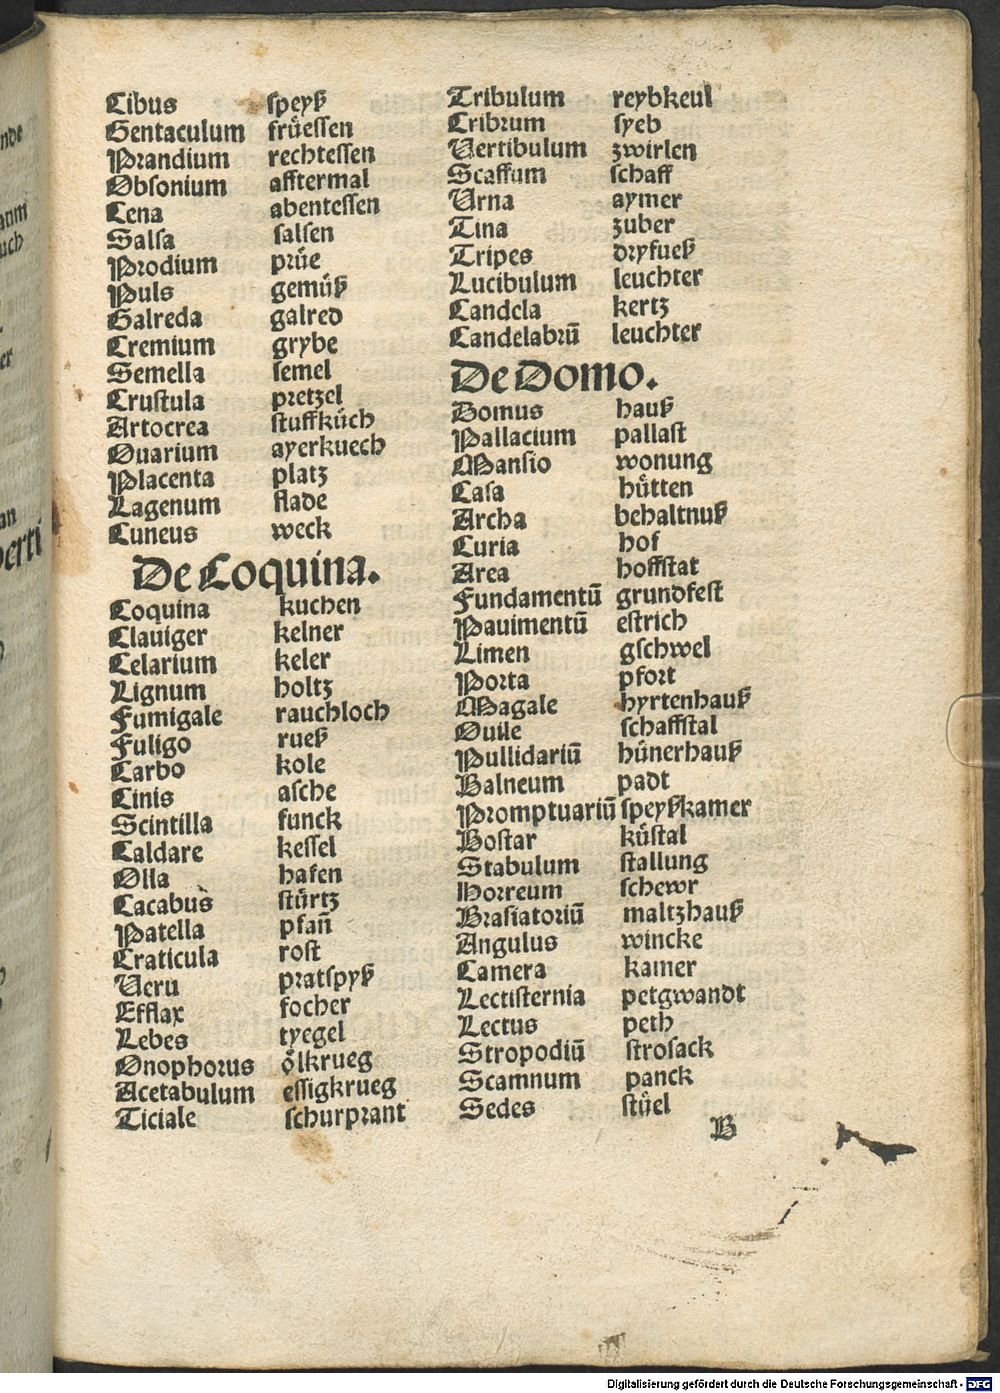 Cibus speyß
Gentaculum früessen
Prandium rechtessen
Obsonium afftermal
Cena abentessen
Salsa salsen
Prodium prüe
Puls gemüß
Galreda galred
Cremium grybe
Semella semel
Crustula pretzel
Artocrea stuffküch
Ouarium ayerkuech
Placenta platz
Lagenum flade
Cuneus weck
De Coquina.
Coquina kuchen
Clauiger kelner
Celarium keler
Lignum holtz
Fumigale rauchloch
Fuligo rueß
Carbo kole
Cinis asche
Scintilla funck
Caldare kessel
Olla hafen
Cacabus stürtz
Patella pfañ
Craticula rost
Ueru pratspyß
Efflax focher
Lebes tyegel
Onophorus ölkrueg
Acetabulum essigkrueg
Ticiale schurprant
Tribulum reybkeul
Cribrum syeb
Vertibulum zwirlen
Scaffum schaff
Vrna aymer
Tina zuber
Tripes dryfueß
Lucibulum leuchter
Candela kertz
Candelabrū leuchter
De Domo.
Domus hauß
Pallacium pallast
Mansio wonung
Casa hütten
Archa behaltnuß
Curia hof
Area hoffstat
Fundamentū grundfest
Pauimentū estrich
Limen gschwel
Porta pfort
Magale hyrtenhauß
Ouile schaffstal
Pullidariū hünerhauß
Balneum padt
Promptuariū speyßkamer
Bostar küstal
Stabulum stallung
Horreum schewr
Brasiatoriū maltzhauß
Angulus wincke
Camera kamer
Lectisternia petgwandt
Lectus peth
Stropodiū strosack
Scamnum panck
Sedes stüel
B
Digitalisierung gefördert durch die Deutsche Forschungsgemeinschaft - DFG